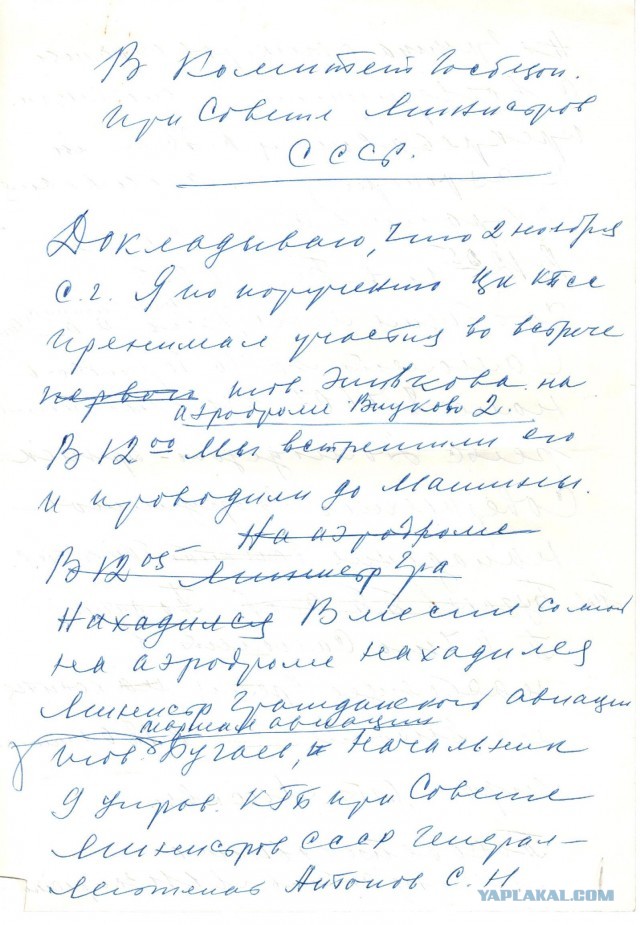 В Комитет Госбезоп.
при Совете Министров
СССР.
Докладываю, что 2 ноября
с.г. Я по поручению ЦК КПСС
пренимал участия во встрече
первого тов. Живкова на
аэродроме Внуково 2.
В 12 00 Мы встретили его
и проводили до Машины.
На аэродроме
В 12 05 Министр Гра
Находился Вместе со мной
на аэродроме находился
Министр Гражданской авиации
маршал авиации
тов Бугаев, и Начальник
9 управ. КГБ при Совете
Министров СССР Генерал-
Антонов С. Н
YAPLAKAL.COM